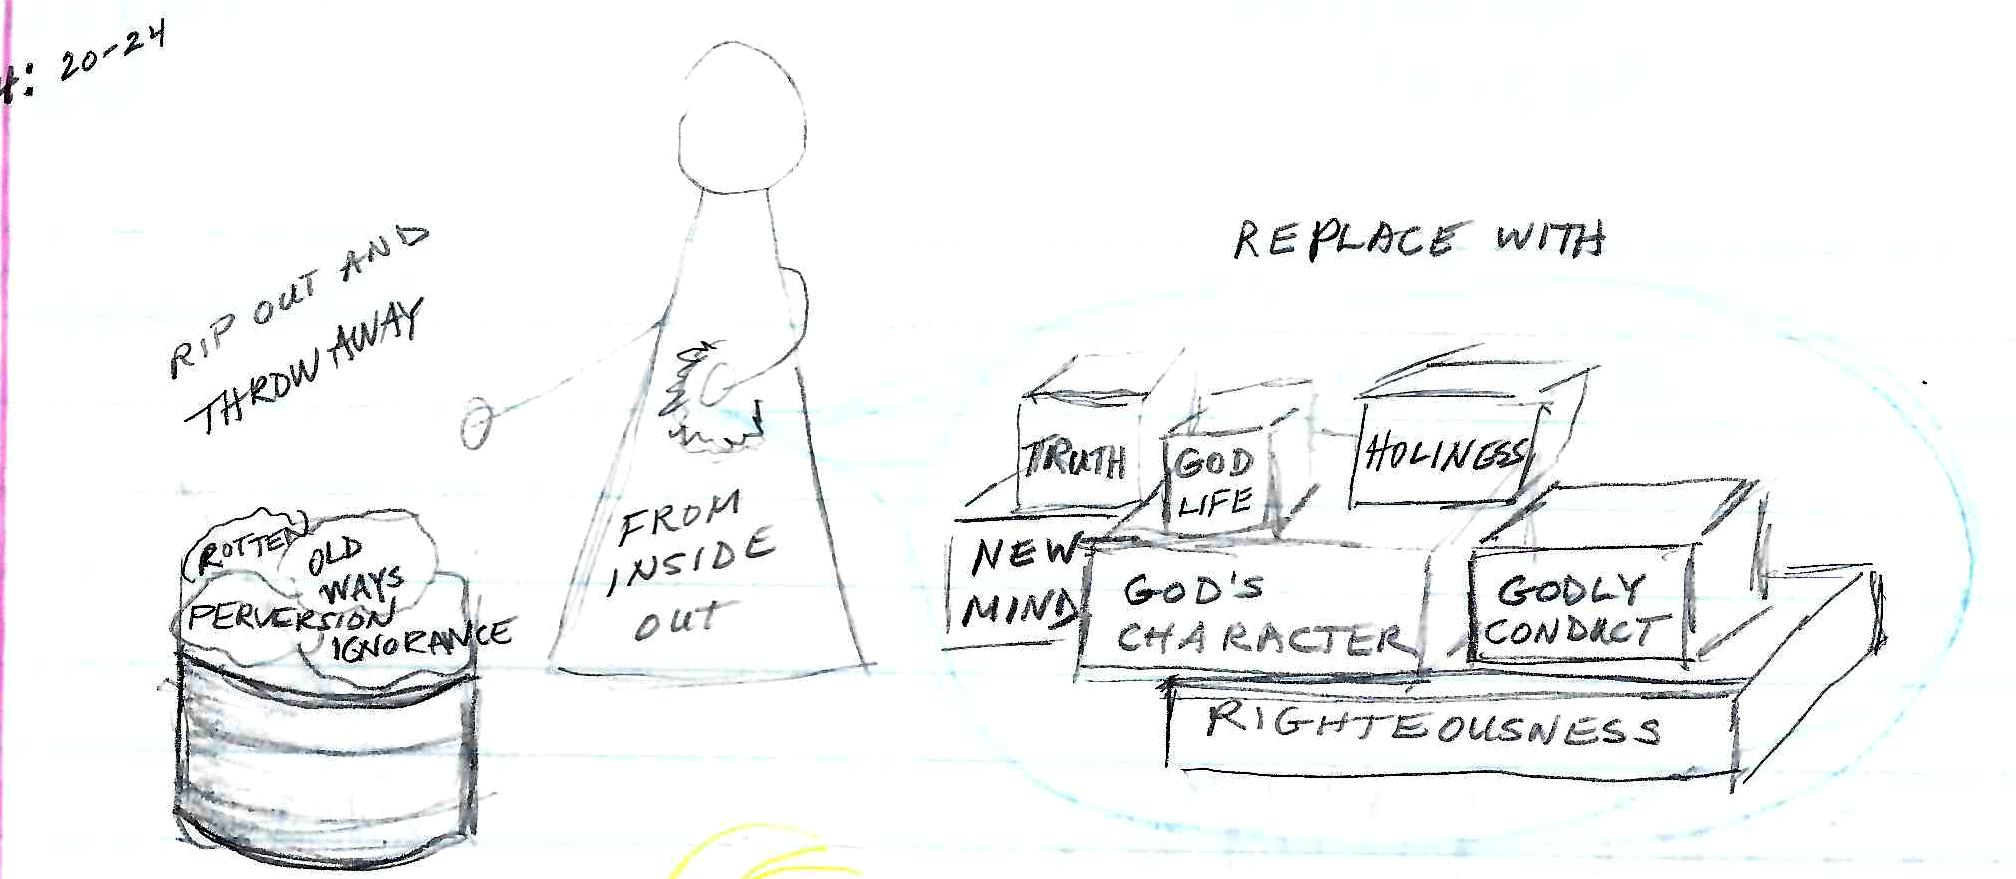 4: 20-24
RIP OUT AND
THROW AWAY
REPLACE WITH
ROTTEN
OLD
WAYS
PERVERSION
IGNORANCE
FROM
INSIDE
OUT
TRUTH
GOD
LIFE
HOLINESS
NEW
MIND
GOD'S
CHARACTER
GODLY
CONDUCT
RIGHTEOUSNESS